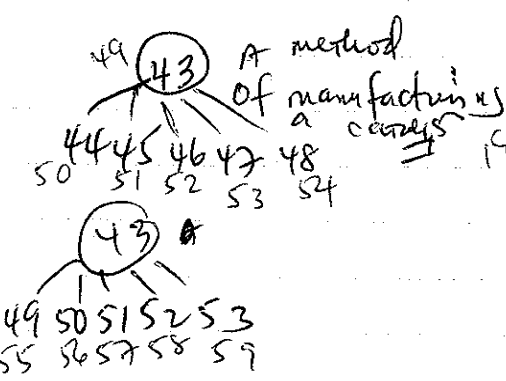 49 43 A method
of manufacturing
a
44 45 46 47 48
50 51 52 53 54
43 A
49 50 51 52 53
55 56 57 58 59